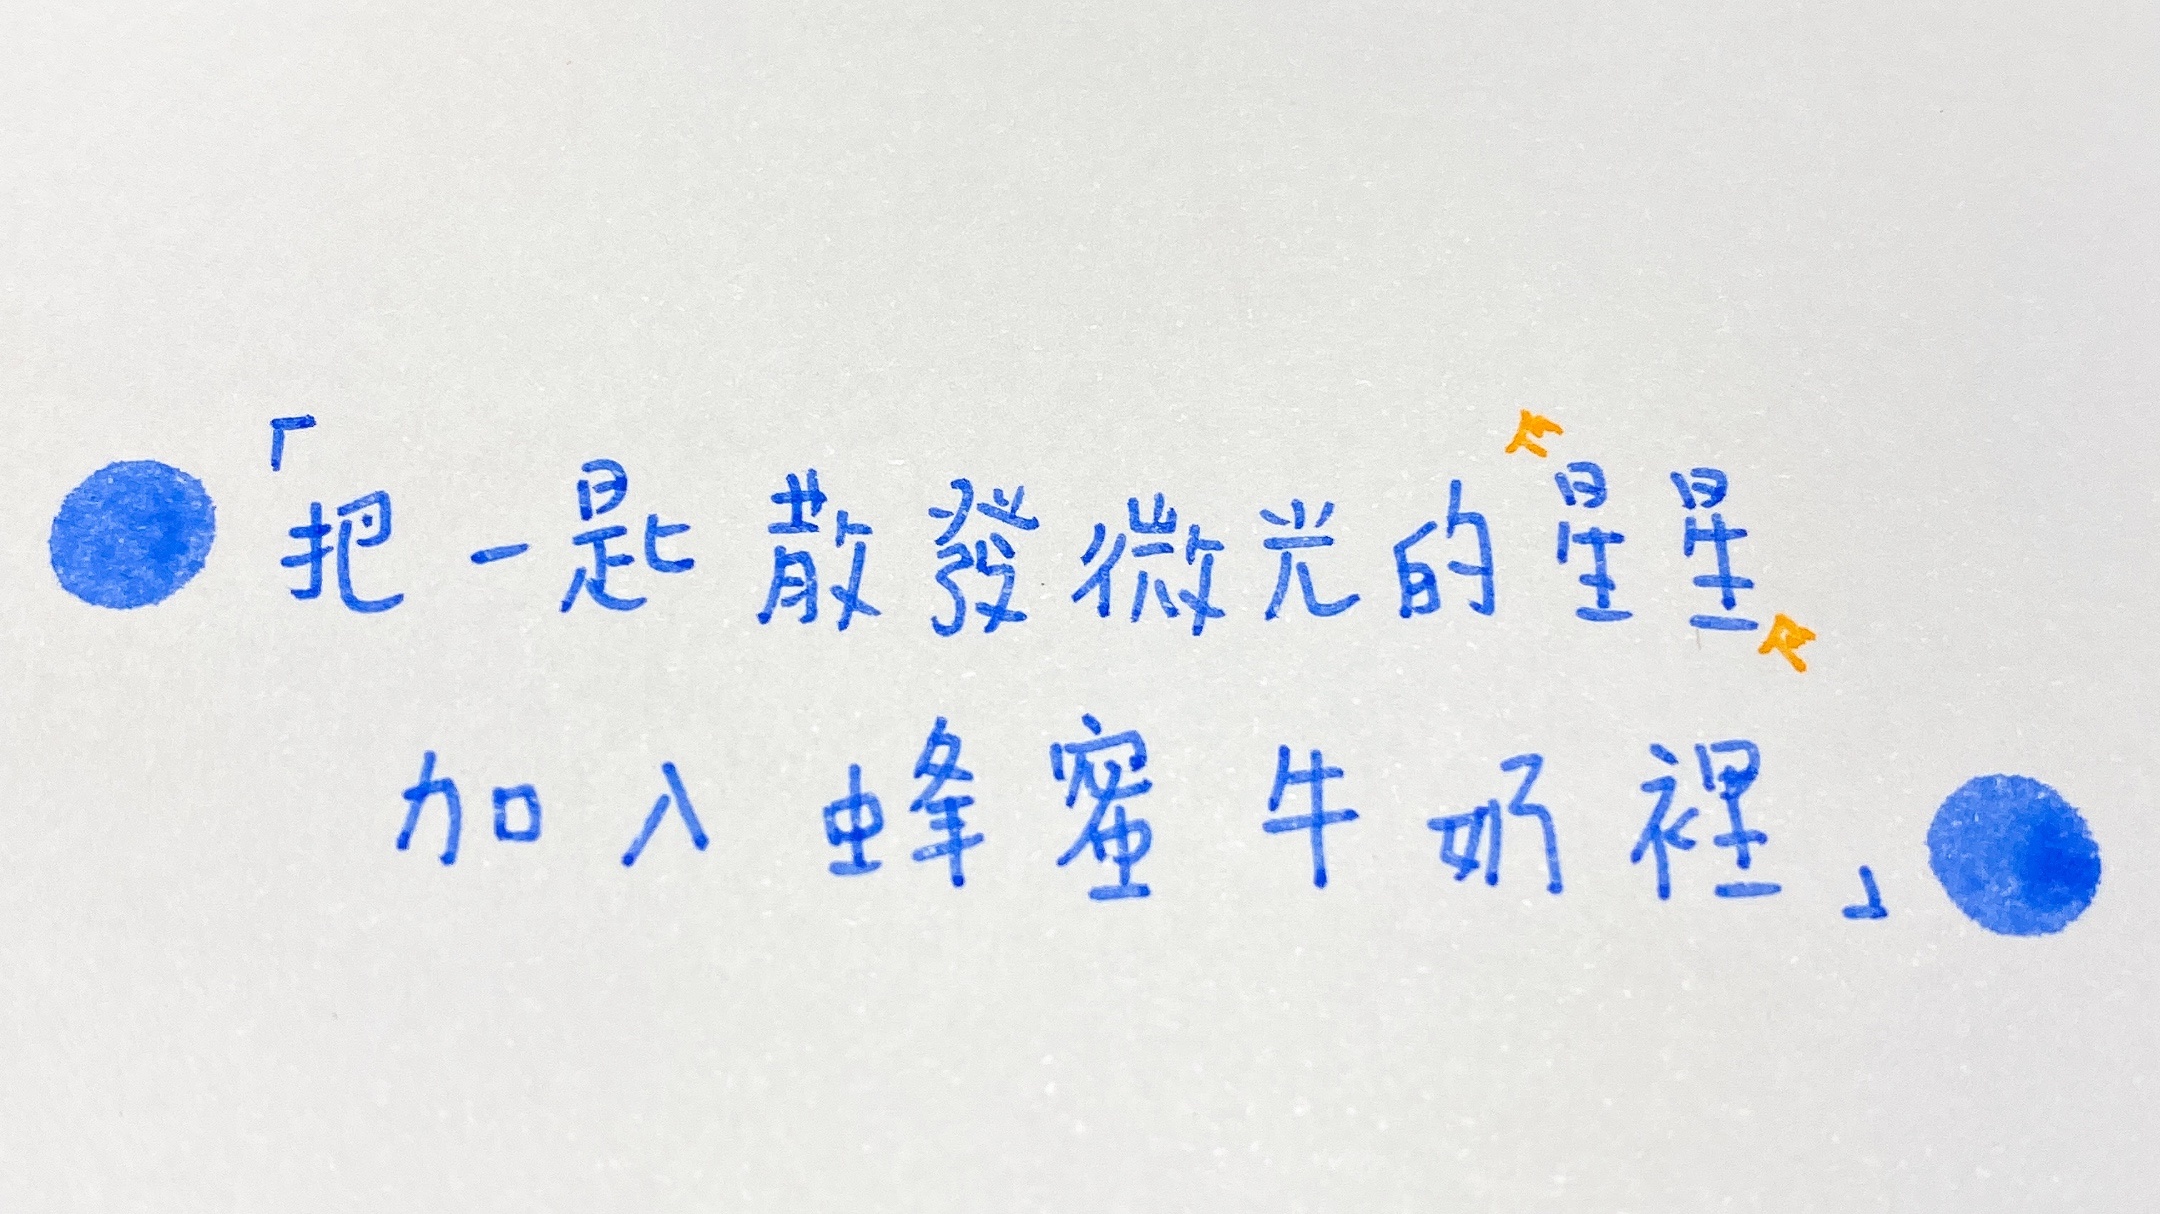 「把一匙散發微光的星星
加入蜂蜜牛奶裡」